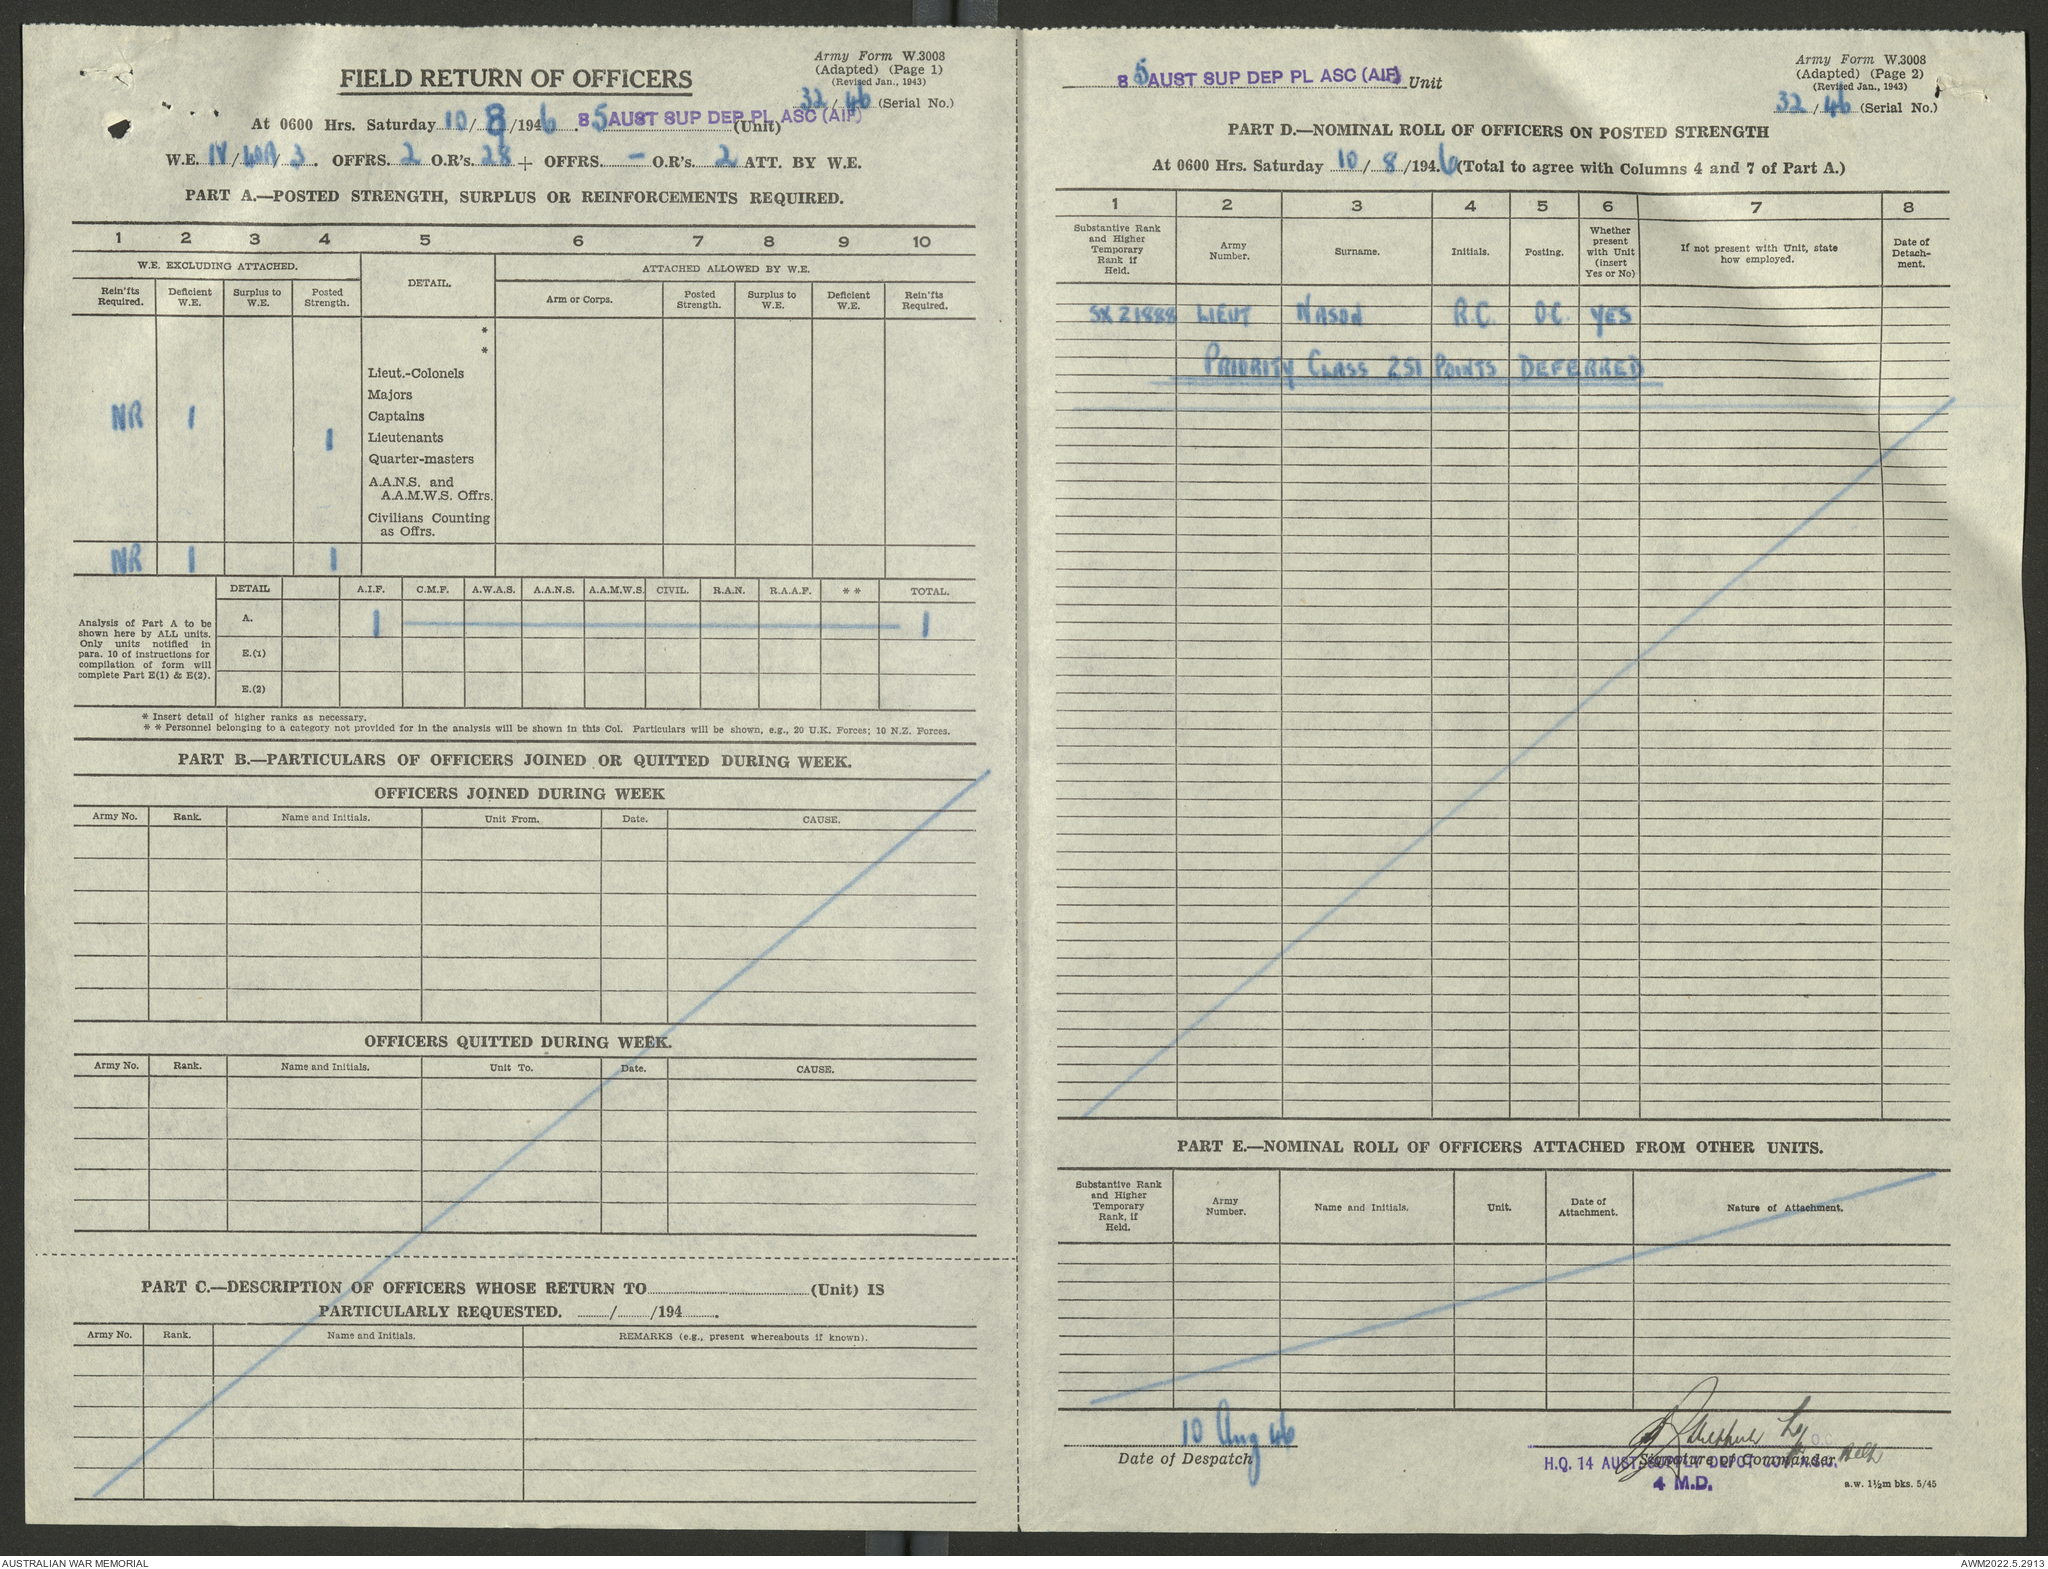 Army Form W.3008
(Adapted) (Page 1)
(Revised Jan., 1943)
FIELD RETURN OF OFFICERS
32/46 (Serial No.)
At 0600 Hrs. Saturday 10/8/1946 85 AUST SUP DEP PL ASC (AIF) (Unit)
W.E. IV/40A/3. OFFRS. 2 O.R's. 28 + OFFRS. - O.R's. 2 ATT. BY W.E.
PART A.—POSTED STRENGTH, SURPLUS OR REINFORCEMENTS REQUIRED.
1 2 3 4 5 6 7 8 9 10
W.E. EXCLUDING ATTACHED. DETAIL. ATTACHED ALLOWED BY W.E.
Rein'fts Required. Deficient W.E. Surplus to W.E. Posted Strength. Arm or Corps. Posted Strength. Surplus to W.E. Deficient W.E. Rein'fts Required.
*
*
Lieut.-Colonels
Majors
NR 1 Captains
1 Lieutenants
Quarter-masters
A.A.N.S. and
A.A.M.W.S. Offrs.
Civilians Counting
as Offrs.
NR 1 1
DETAIL A.I.F. C.M.F. A.W.A.S. A.A.N.S. A.A.M.W.S. CIVIL. R.A.N. R.A.A.F. * * TOTAL.
Analysis of Part A to be
shown here by ALL units.
Only units notified in
para. 10 of instructions for
compilation of form will
complete Part E(1) & E(2).
A. 1 1
E.(1)
E.(2)
* Insert detail of higher ranks as necessary.
* * Personnel belonging to a category not provided for in the analysis will be shown in this Col. Particulars will be shown, e.g., 20 U.K. Forces; 10 N.Z. Forces.
PART B.—PARTICULARS OF OFFICERS JOINED OR QUITTED DURING WEEK.
OFFICERS JOINED DURING WEEK
Army No. Rank. Name and Initials. Unit From. Date. CAUSE.
OFFICERS QUITTED DURING WEEK.
Army No. Rank. Name and Initials. Unit To. Date. CAUSE.
PART C.—DESCRIPTION OF OFFICERS WHOSE RETURN TO (Unit) IS
PARTICULARLY REQUESTED. / /194 .
Army No. Rank. Name and Initials. REMARKS (e.g., present whereabouts if known).
Army Form W.3008
(Adapted) (Page 2)
(Revised Jan., 1943)
85 AUST SUP DEP PL ASC (AIF) Unit
32/46 (Serial No.)
PART D.—NOMINAL ROLL OF OFFICERS ON POSTED STRENGTH
At 0600 Hrs. Saturday 10/8/1946 (Total to agree with Columns 4 and 7 of Part A.)
1 2 3 4 5 6 7 8
Substantive Rank and Higher Temporary Rank if Held. Army Number. Surname. Initials. Posting. Whether present with Unit (insert Yes or No) If not present with Unit, state how employed. Date of Detach-ment.
SX21888 LIEUT NASON R.C. O.C. YES
PRIORITY CLASS 251 POINTS DEFERRED
PART E.—NOMINAL ROLL OF OFFICERS ATTACHED FROM OTHER UNITS.
Substantive Rank and Higher Temporary Rank, if Held. Army Number. Name and Initials. Unit. Date of Attachment. Nature of Attachment.
10 Aug 46
Date of Despatch
O.C.
Signature of Commander
H.Q. 14 AUST. SUPPLY DEPOT COY. A.S.C.
4 M.D.
a.w. 1½m bks. 5/45
AUSTRALIAN WAR MEMORIAL
AWM2022.5.2913